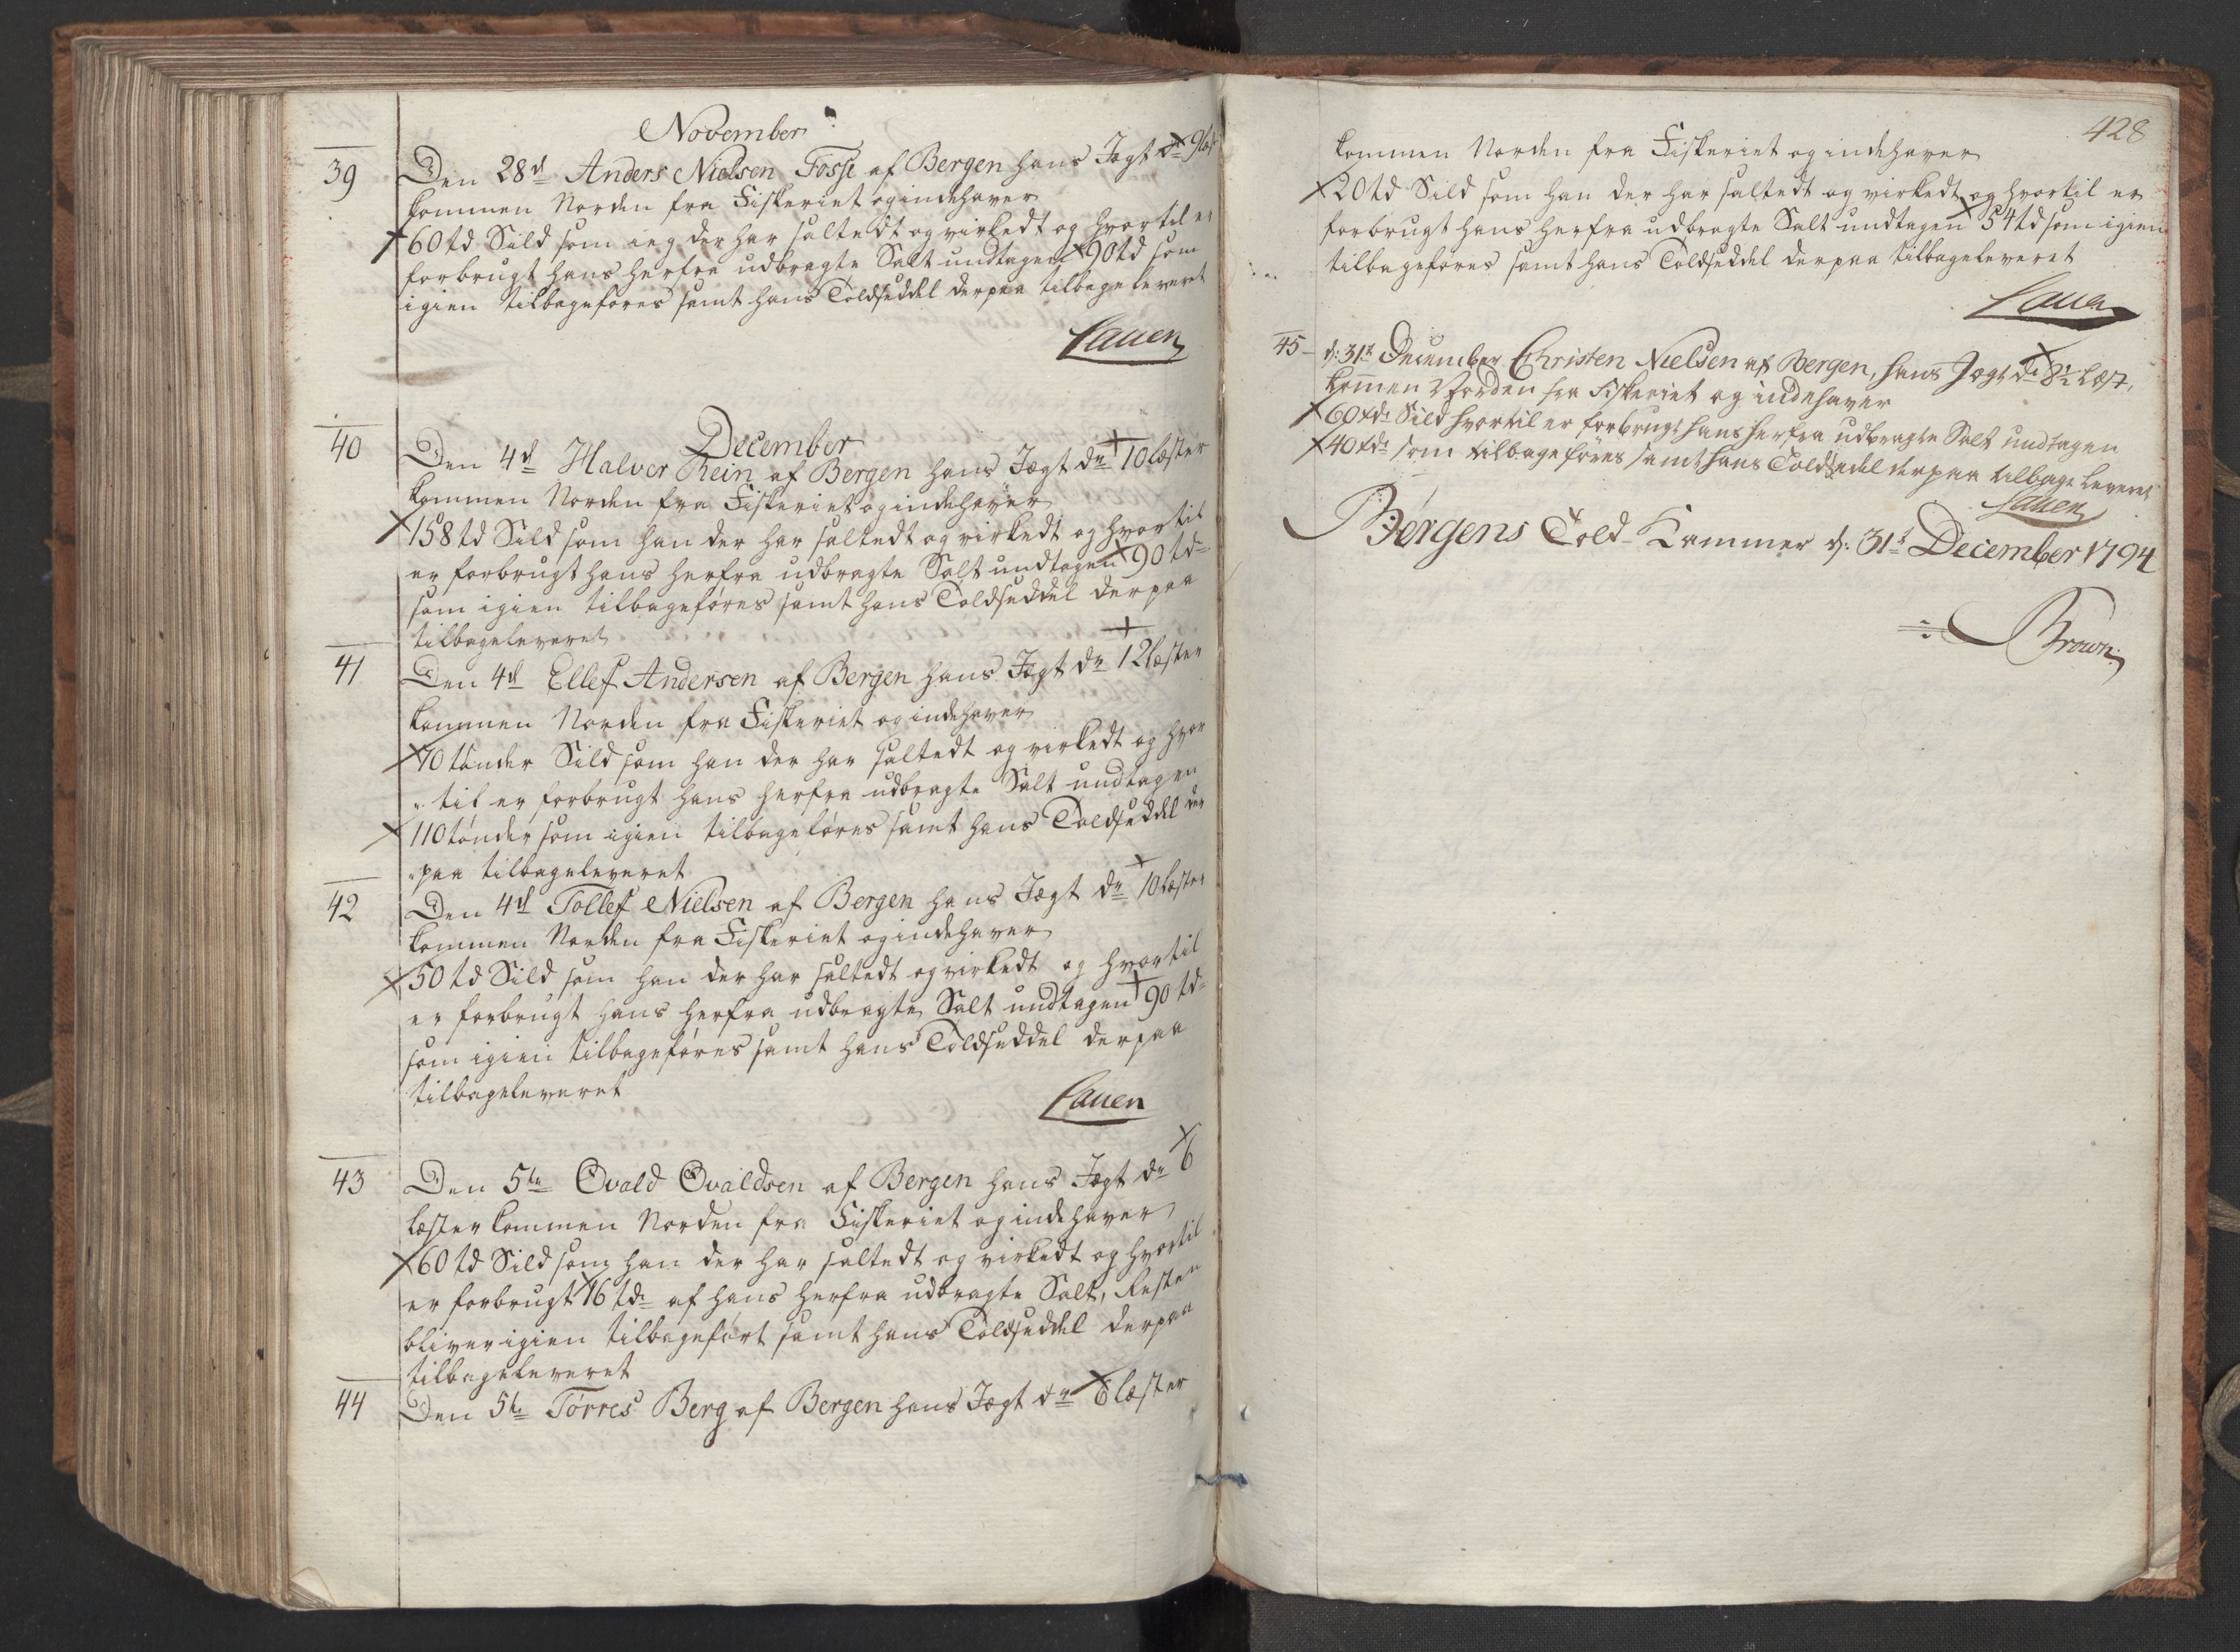 November
39 Den 28d Anders Nielsen Fosse af Bergen hans Jægt dr 9 læst
kommen Norden fra Fiskeriet og indehaver
60 td Sild som ieg der har saltedt og virkedt og hvortil er
forbrugt hans herfra udbragte Salt undtagen 90 td som
igien tilbageføres samt hans Toldseddel derpaa tilbageleveret
Lauen
December
40 Den 4d Halvor Rein af Bergen hans Jægt dr 10 læster
kommen Norden fra Fiskeriet og indehaver
158 td Sild som han der har saltedt og virkedt og hvortil
er forbrugt hans herfra udbragte Salt undtagen 90 td
som igien tilbageføres samt hans Toldseddel derpaa
tilbageleveret
41 Den 4d Ellef Andersen af Bergen hans Jægt dr 12 læster
kommen Norden fra Fiskeriet og indehaver
70 tønder Sild som han der har saltedt og virkedt og hvor
"til er forbrugt hans herfra udbragte Salt undtagen
110 tønder som igien tilbageføres samt hans Toldseddel der
"paa tilbageleveret
42 Den 4d Tollef Nielsen af Bergen hans Jægt dr 10 læster
kommen Norden fra Fiskeriet og indehaver
50 td Sild som han der har saltedt og virkedt og hvortil
er forbrugt hans herfra udbragte Salt undtagen 90 td
som igien tilbageføres samt hans Toldseddel derpaa
tilbageleveret
Lauen
43 Den 5te Evald Evaldsen af Bergen hans Jægt dr 6
læster kommen Norden fra Fiskeriet og indehaver
60 td Sild som han der har saltedt og virkedt og hvortil
er forbrugt 16 td af hans herfra udbragte Salt, Resten
bliver igien tilbageført samt hans Toldseddel derpaa
tilbageleveret
44 Den 5te Torres Berg af Bergen hans Jægt dr 6 læster
428
kommen Norden fra Fiskeriet og indehaver
20 td Sild som han der har saltedt og virkedt og hvortil er
forbrugt hans herfra udbragte Salt undtagen 54 td som igien
tilbageføres samt hans Toldseddel derpaa tilbageleveret
Lauen
45 d: 31t December Christen Nielsen af Bergen, hans Jægt dr 8½ læst,
kommen Norden fra Fiskeriet og indehaver
60 tdr Sild hvortil er forbrugt hans herfra udbragte Salt undtagen
40 tdr som tilbageføres samt hans Toldsedel derpaa tilbage leveret
Lauen
Bergens Told-Kammer d: 31t December 1794
Brown